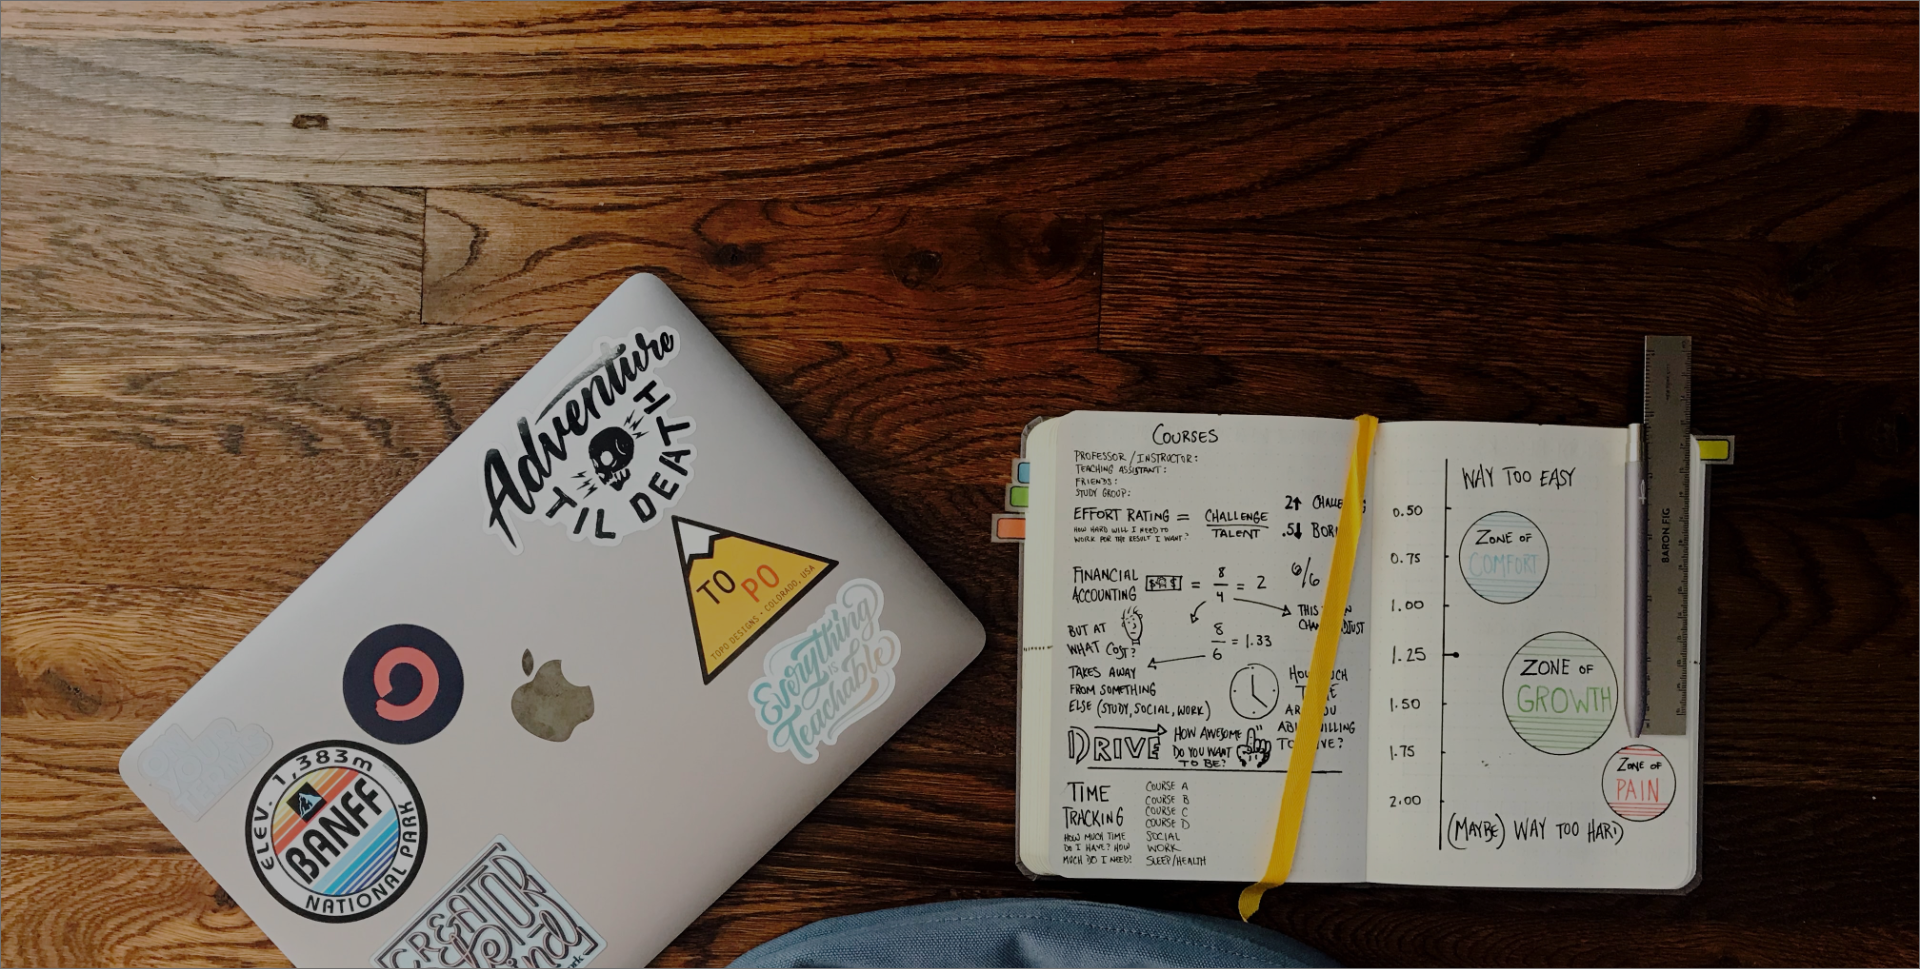 Adventure
'TIL DEATH
TO PO
TOPO DESIGNS • COLORADO, USA
Everything
IS
Teachable
ELEV. 1,383m
BANFF
NATIONAL PARK
CREATOR
COURSES
PROFESSOR / INSTRUCTOR:
TEACHING ASSISTANT:
FRIENDS:
STUDY GROUP:
EFFORT RATING = CHALLENGE
TALENT
HOW HARD WILL I NEED TO
WORK FOR THE RESULT I WANT?
2↑
.5↓
FINANCIAL
ACCOUNTING
$
= 8/4 = 2
6/6
THIS
8/6 = 1.33
BUT AT
WHAT COST?
TAKES AWAY
FROM SOMETHING
ELSE (STUDY, SOCIAL, WORK)
DRIVE
HOW AWESOME
DO YOU WANT
TO BE?
TIME
TRACKING
HOW MUCH TIME
DO I HAVE? HOW
MUCH DO I NEED?
COURSE A
COURSE B
COURSE C
COURSE D
SOCIAL
WORK
SLEEP/HEALTH
WAY TOO EASY
0.50
ZONE OF
COMFORT
0.75
1.00
1.25
ZONE OF
GROWTH
1.50
1.75
ZONE OF
PAIN
2.00
(MAYBE) WAY TOO HARD
BARON FIG